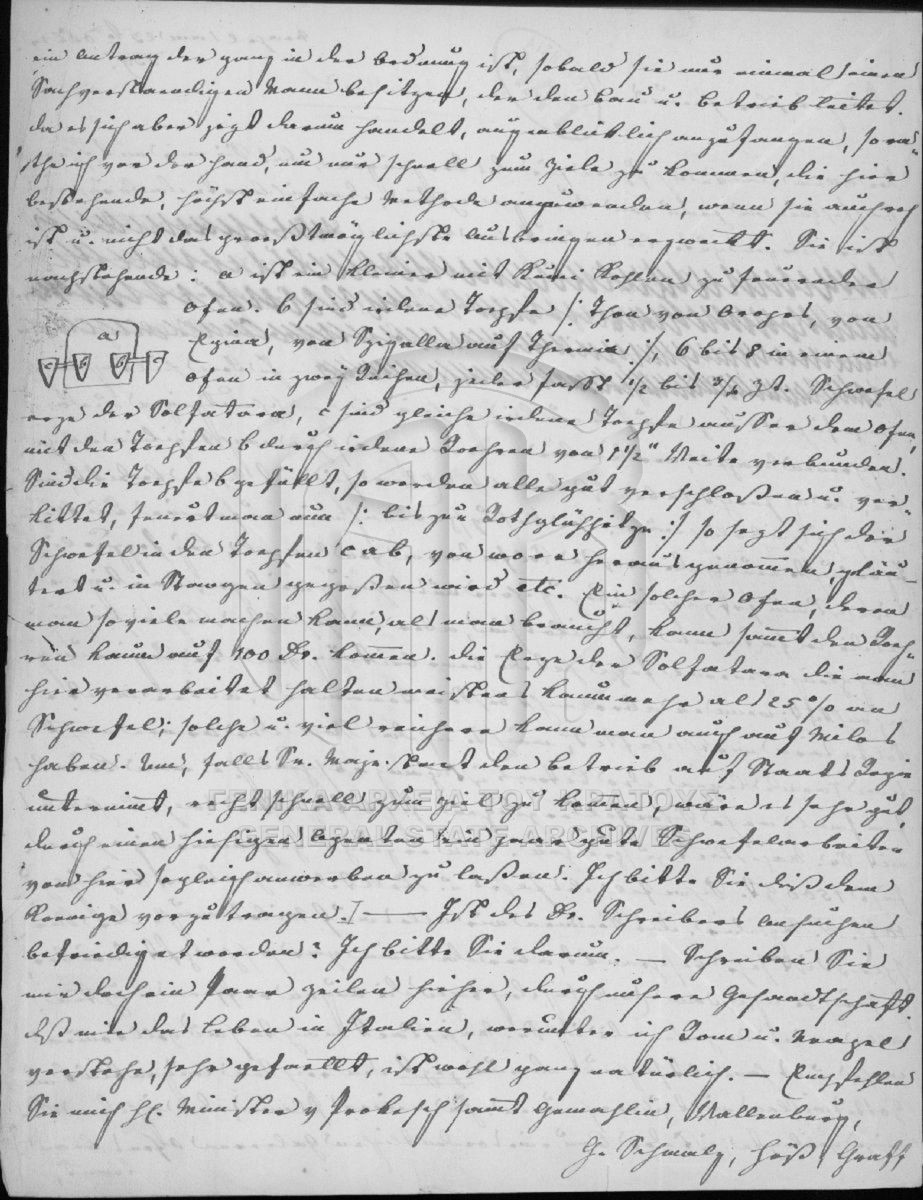 ein Antrag der ganz in der Ordnung ist, sobald sie nur einmal einen
Sachverstaendigen Mann besitzen, der den Bau u. Betrieb leitet.
da es sich aber jezt darum handelt, augenblicklich anzufangen, so ra-
the ich vor der Hand, um nur schnell zum Ziele zu kommen, die hier
bestehende, höchst einfache Methode anzuwenden, wenn sie auch roh
ist u. nicht das groesstmöglichste Ausbringen erzweckt. Sie ist
nachstehende: a ist ein kleiner mit Kohlen zu feuernder
Ofen. b sind irdene Toepfe /: Thon von Oropos, von
Egina, von auf Thermia :/, 6 bis 8 in einem
Ofen in zwey Reihen, jeder fasst 1/2 bis Zt. Schwefel
erze der Solfatara, c sind gleiche irdene Toepfe ausser dem Ofen,
mit den Toepfen b durch irdene Roehren von 1 1/2" Weite verbunden.
Sind die Toepfe b gefüllt, so werden alle gut verschloßen u. ver-
kittet, feuert man nun /: bis zur Rothglühhitze :/ so sezt sich der
Schwefel in den Toepfen c ab, von wo er heraus genommen, gläu-
tert u. in Stangen gegoßen wird etc. Ein solcher Ofen, deren
man so viele machen kann, als man braucht, kann samt den Roeh-
ren kaum auf 100 Dr. kommen. die Erze der Solfatara die man
hier verarbeitet halten meistens kaum mehr als 25 % an
Schwefel; solche u. viel reichere kann man auch auf Milos
haben. Um, falls Se. Maje. staet den Betrieb auf Staats Regie
unternimt, recht schnell zum Ziel zu komen, wäre es sehr gut,
durch einen hiesigen Agenten ein paar gute Schwefelarbeiter
von hier sogleich anwerben zu laßen. Ich bitte Sie diß dem
Koenige vorzutragen.] — Ist des Dr. Schreibers Ansuchen
befriediget worden? Ich bitte Sie darum. — Schreiben Sie
mir doch ein Paar Zeilen hieher, durch unsere Gesandtschaft.
dß mir das Leben in Italien, worunter ich Rom u. Neapel
verstehe, sehr gefaellt, ist wohl ganz natürlich. — Empfehlen
Sie mich H. Minister v Prokesch samt Gemahlin, Wallenburg,
H. Schmalz, Heß, Graff
a
c b b c
ΓΕΝΙΚΑ ΑΡΧΕΙΑ ΤΟΥ ΚΡΑΤΟΥΣ
GENERAL STATE ARCHIVES